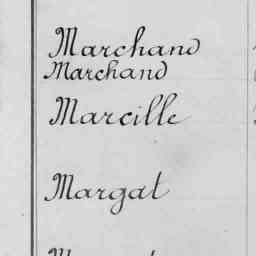 Marchand
Marchand
Marcille
Margat